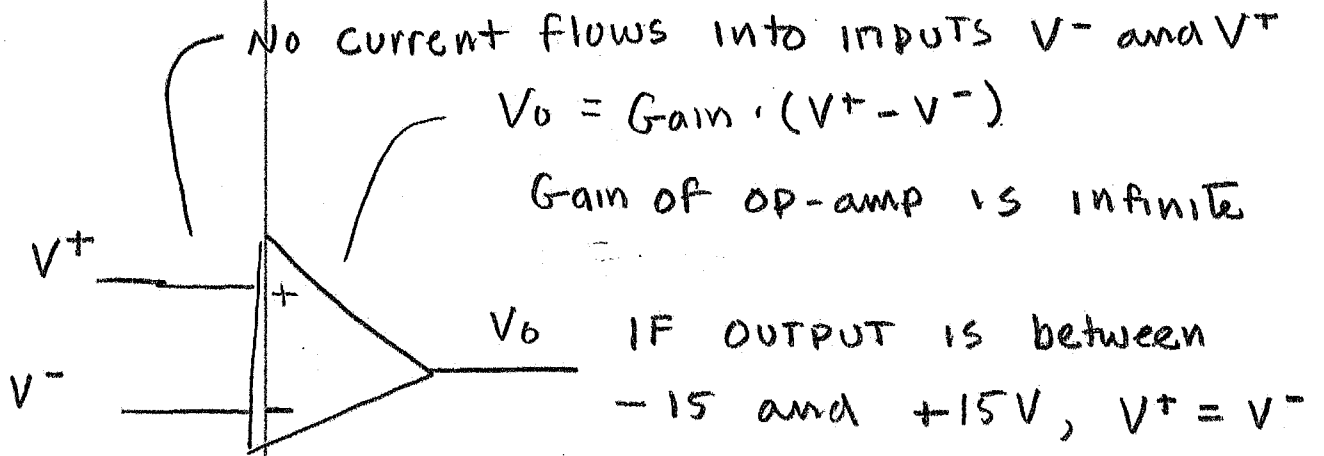 No current flows into inputs V- and V+
Vo = Gain · (V+ - V-)
Gain of op-amp is infinite
V+
+
Vo IF OUTPUT is between
V-
-
-15 and +15V, V+ = V-